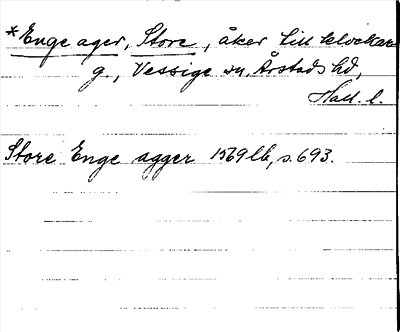 *Enge ager, Store, åker till klockare
g., Vessige sn, Årstads hd,
Hall. l.
Store Enge agger 1569 lb, s. 693.